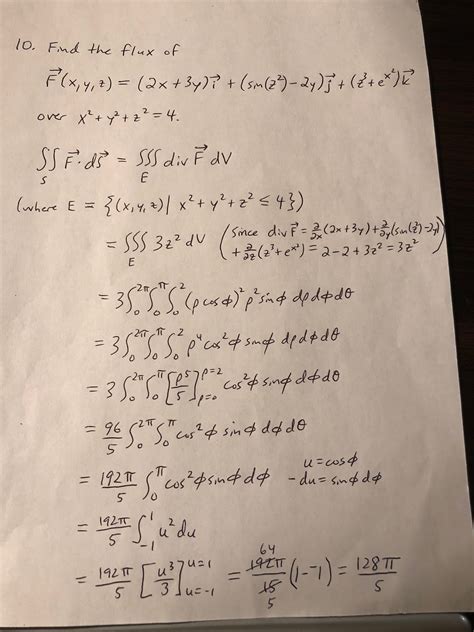 10. Find the flux of
F⃗(x,y,z) = (2x+3y)i⃗ + (sin(z²)-2y)j⃗ + (z³+e^(x²))k⃗
over x²+y²+z² = 4.
∬_S F⃗·dS⃗ = ∭_E div F⃗ dV
(where E = {(x,y,z)| x²+y²+z² ≤ 4})
= ∭_E 3z² dV (since div F⃗ = ∂/∂x(2x+3y)+∂/∂y(sin(z²)-2y)
+ ∂/∂z(z³+e^(x²)) = 2-2+3z² = 3z²)
= 3∫₀^(2π)∫₀^π∫₀² (ρ cos φ)² ρ² sin φ dρ dφ dθ
= 3∫₀^(2π)∫₀^π∫₀² ρ⁴ cos² φ sin φ dρ dφ dθ
= 3∫₀^(2π)∫₀^π [ρ⁵/5]_(ρ=0)^(ρ=2) cos² φ sin φ dφ dθ
= 96/5 ∫₀^(2π)∫₀^π cos² φ sin φ dφ dθ
= 192π/5 ∫₀^π cos² φ sin φ dφ u = cos φ
-du = sin φ dφ
= 192π/5 ∫₋₁¹ u² du
= 192π/5 [u³/3]_(u=-1)^(u=1) = 64 192π/15 5 (1-⁻1) = 128π/5